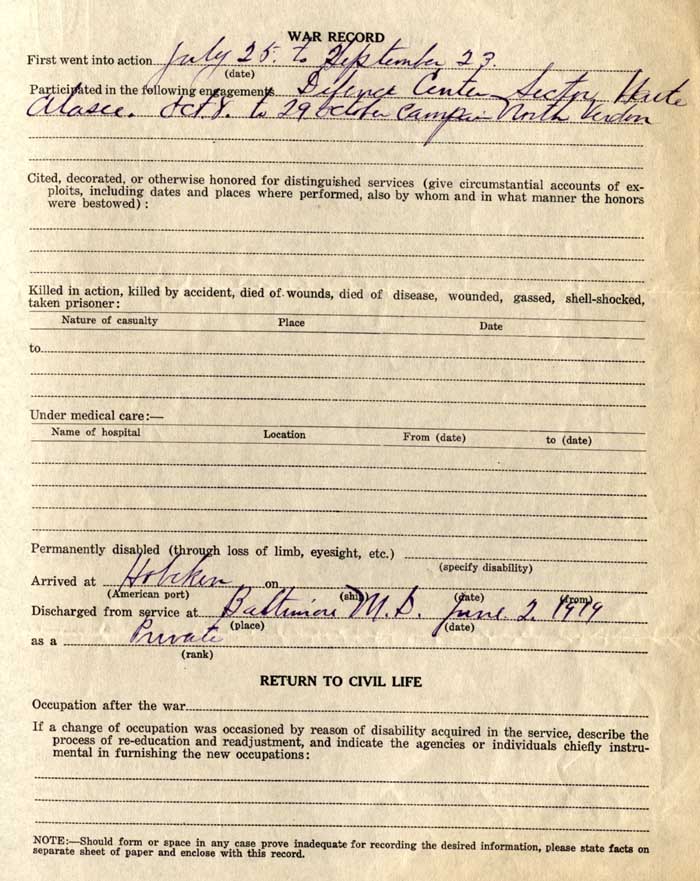 WAR RECORD
First went into action July 25. to September 23.
(date)
Participated in the following engagements Defence Center Sector Haute
Alasce. Oct 8. to 29 October Campain North Verdon
Cited, decorated, or otherwise honored for distinguished services (give circumstantial accounts of ex-
ploits, including dates and places where performed, also by whom and in what manner the honors
were bestowed) :
Killed in action, killed by accident, died of wounds, died of disease, wounded, gassed, shell-shocked,
taken prisoner:
Nature of casualty Place Date
to
Under medical care:—
Name of hospital Location From (date) to (date)
Permanently disabled (through loss of limb, eyesight, etc.)
(specify disability)
Arrived at Hobeken on
(American port) (ship) (date) (from)
Discharged from service at Baltimore M.D. June 2. 1919
(place) (date)
as a Private
(rank)
RETURN TO CIVIL LIFE
Occupation after the war
If a change of occupation was occasioned by reason of disability acquired in the service, describe the
process of re-education and readjustment, and indicate the agencies or individuals chiefly instru-
mental in furnishing the new occupations:
NOTE:—Should form or space in any case prove inadequate for recording the desired information, please state facts on
separate sheet of paper and enclose with this record.